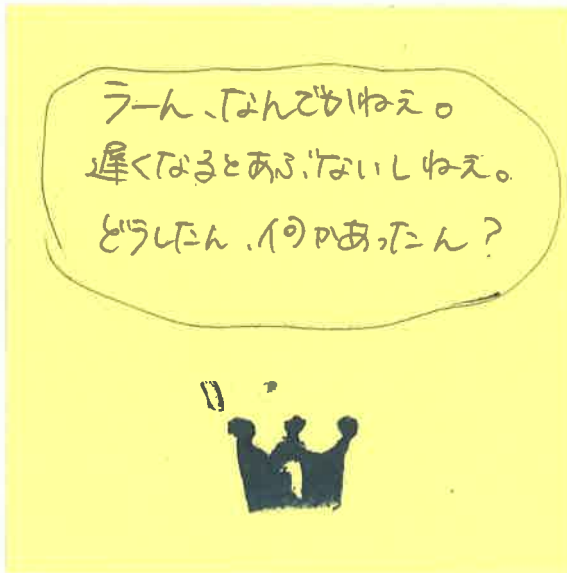 うーん、なんでかねえ。
遅くなるとあぶないしねえ。
どうしたん、何かあったん？
1